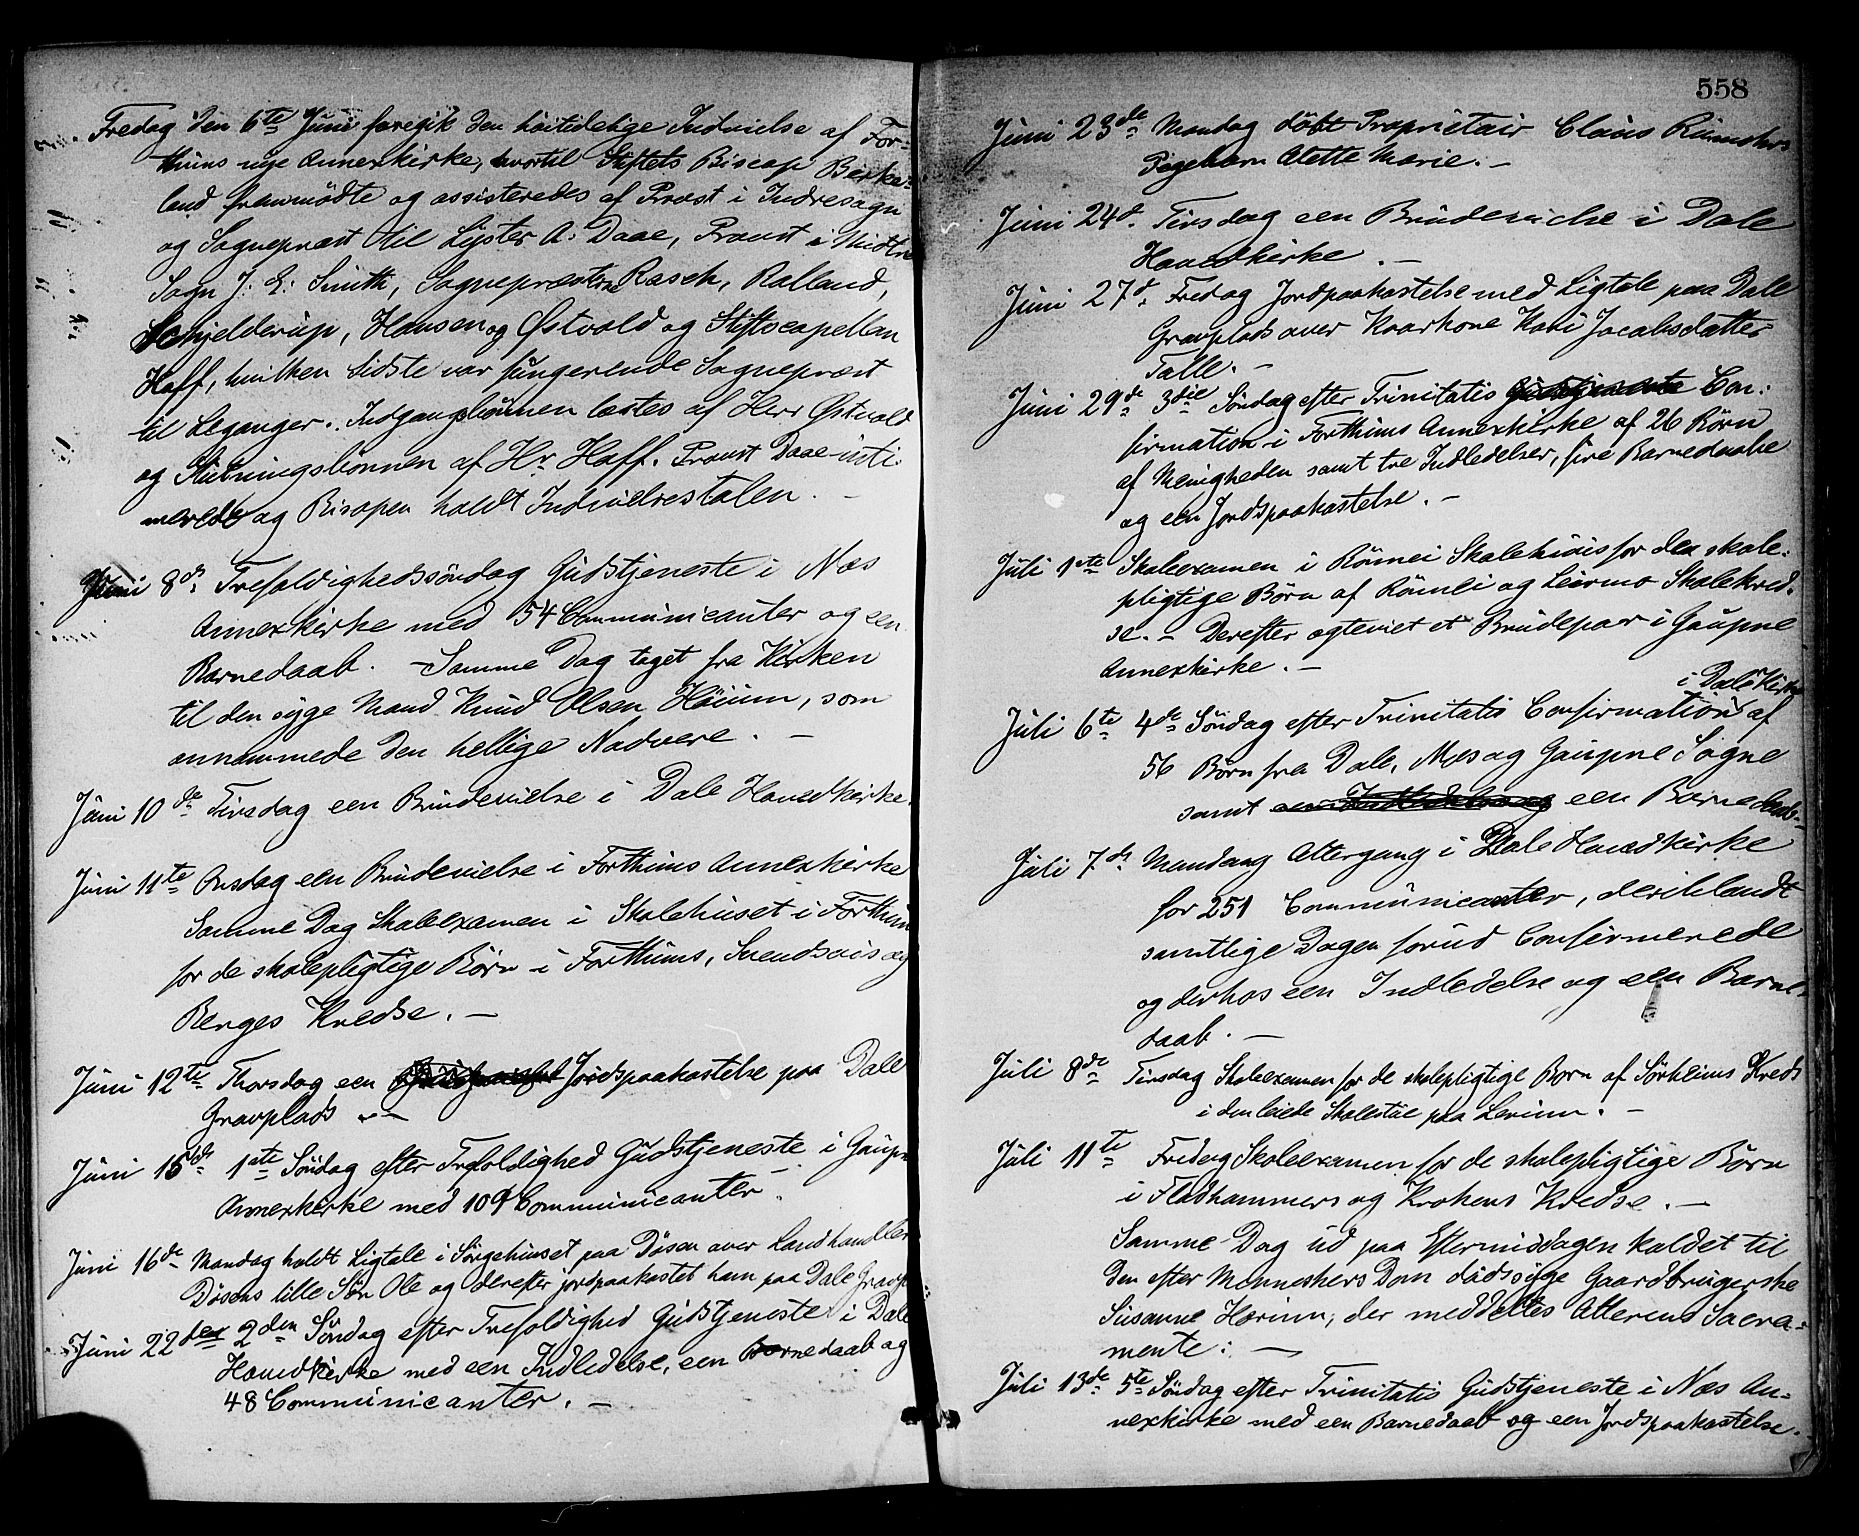 Fredag den 6te Juni foregik den höitidelige Indvielse af For-
thuns nye Annexkirke, hvortil Stiftets Biscop Birke-
land fremmödte og assisteredes af Provst i Indresogn
og Sognepræst til Lyster A. Daae, Provst i Midtre
Sogn J. E. Smith, Sognepræsterne Rasch, Balland,
Schjelderup, Hansen og Østvold og Stiftscapellan
Hoff, hvilken Sidste var fungerende Sognepræst
til Leganger. Indgangsbönnen læstes af Herr Østvold
og Slutningsbönnen af Hr Hoff. Provst Daae inti-
merede og Biscopen holdt Indvielsestalen. —
Juni 8de Trefoldighedssöndag Gudstjeneste i Næs
Annexkirke med 54 Communicanter og een
Barnedaab. — Samme Dag taget fra Kirken
til den syge Mand Knud Olsen Höium, som
annammede den hellige Nadvere. —
Juni 10de Tirsdag een Brudevielse i Dale Hovedkirke.
Juni 11te Onsdag een Brudevielse i Forthuns Annexkirke
Samme Dag Skoleexamen i Skolehuset i Forthun
for de skolepligtige Börn i Forthuns, Svendsøis og
Berges Kredse. —
Juni 12te Thorsdag een Jordspaakastelse paa Dale
Gravplads. —
Juni 15de 1ste Söndag efter Trefoldighed Gudstjeneste i Gaupne
Annexkirke med 109 Communicanter.
Juni 16de Mandag holdt Ligtale i Sörgehuset paa Dösen over Landhandler
Dösens lille Sön Ole og derefter jordpaakastet ham paa Dale Gravp
Juni 22den 2den Söndag efter Trefoldighed Gudstjeneste i Dale
Hovedkirke med een Indledelse, een Barnedaab og
48 Communicanter. —
558
Juni 23de Mandag döbt Proprietair Claus Rumohrs
Pigebarn Alette Marie. —
Juni 24d. Tirsdag een Brudevielse i Dale
Hovedkirke. —
Juni 27d. Fredag Jordpaakastelse med Ligtale paa Dale
Gravplads over Kaarkone Kari Jacobsdatter
Talle. —
Juni 29de 3die Söndag efter Trinitatis Gudstjeneste Con-
firmation i Forthuns Annexkirke af 26 Börn
af Menigheden samt tre Indledelser, fire Barnedaabe
og een Jordspaakastelse. —
Juli 1ste Skoleexamen i Römei Skolehuus for den skole-
pligtige Börn af Römei og Leirmo Skolekred-
se. — Derefter egteviet et Brudepar i Gaupne
Annexkirke. —
i Dale Kirke
Juli 6te 4de Söndag efter Trinitatis Confirmation af
56 Börn fra Dale, Næs og Gaupne Sogne
samt een Indledelse og een Barnedaab. —
Juli 7de Mandaag Altergang i Dale Hovedkirke
for 251 Communicanter, deriblandt
samtlige Dagen forud Confirmerede
og derhos een Indledelse og een Barne-
daab. —
Juli 8de Tirsdag Skoleexamen for de skolepligtige Born af Sörheims Kreds
i den leiede Skolestue paa Lerium. —
Juli 11te Fredag Skoleexamen for de skolepligtige Börn
i Flahammers og Krokens Kredse. —
Samme Dag ud paa Eftermiddagen kaldet til
den efter Menneskers Dom dödssyge Gaardbrugerske
Susanne Havrium, der meddeltes Alterens Sacra-
mente. —
Juli 13de 5te Söndag efter Trinitatis Gudstjeneste i Næs An-
nexkirke med een Barnedaab og een Jordspaakastelse.